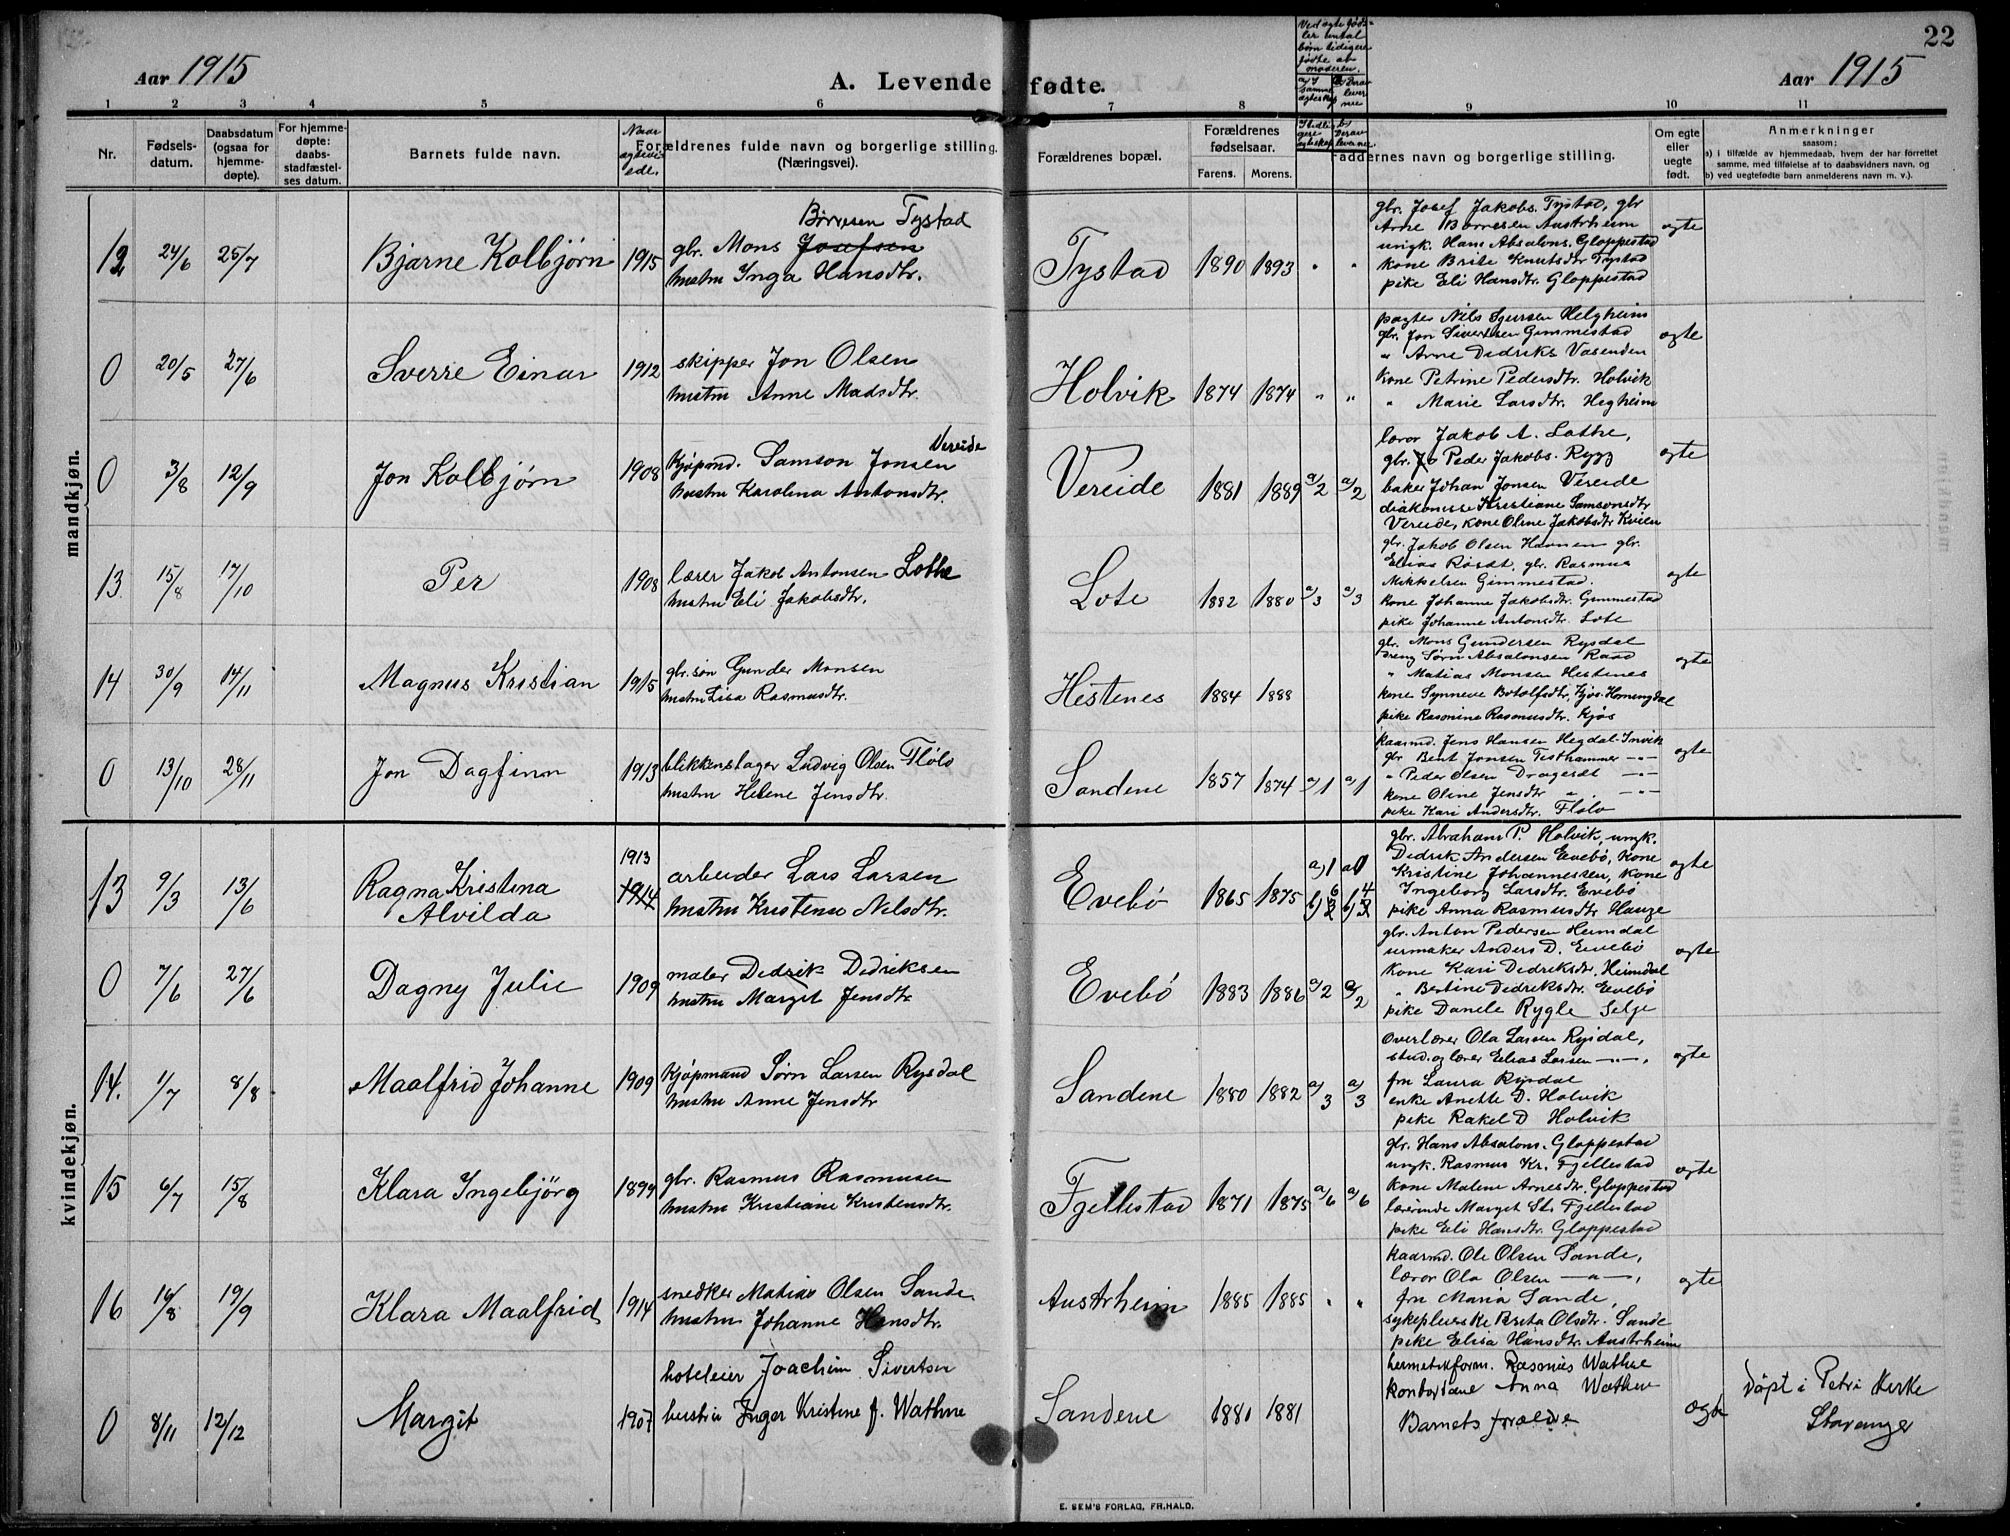 22
Aar 1915
A. Levende fødte.
Aar 1915
Ved egte føds-
ler antal
børn tidligere
fødte av
moderen.
1 2 3 4 5 6 7 8 9 10 11
Nr.
Fødsels-
datum.
Daabsdatum
(ogsaa for
hjemme-
døpte).
For hjemme-
døpte:
daabs-
stadfæstel-
ses datum.
Barnets fulde navn.
Naar
egtevi-
ede.
Forældrenes fulde navn og borgerlige stilling.
(Næringsvei).
Forældrenes bopæl.
Forældrenes
fødselsaar.
Farens. Morens.
Faddernes navn og borgerlige stilling.
Om egte
eller
uegte
født.
Anmerkninger
saasom;
a) i tilfælde av hjemmedaab, hvem der har forrettet
samme, med tilføielse af to daabsvidners navn, og
b) ved uegtefødte barn anmelderens navn m. v.).
mandkjøn.
12 24/6 25/7 Bjarne Kolbjørn 1915
Børresen Tystad
gbr. Mons Josefsen
hustru Inga Hansdtr.
Tystad 1890 1893 " "
gbr. Josef Jakobs. Tystad, gbr
Arne Børresen Austrheim
ungk. Hans Absalons. Gloppestad
kone Brite Knutsdtr Tystad
pike Eli Hansdtr. Gloppestad
egte
0 20/5 27/6 Sverre Einar 1912
skipper Jon Olsen
hustru Anne Madsdtr.
Holvik 1874 1874 " "
pagter Nils Sjursen Helgheim
gbr. Jon Sivertsen Gimmestad
" Arne Didriks Vasenden
kone Petrine Pedersdtr. Holvik
" Marie Larsdtr. Hegheim
egte
0 3/8 12/9 Jon Kolbjørn 1908
Vereide
kjøpmd. Samson Jonsen
hustru Karolina Antonsdtr.
Vereide 1881 1889 a/2 a/2
lærer Jakob A. Lothe,
gbr. Peder Jakobs. Rygg
baker Johan Jonsen Vereide
diakonisse Kristiane Samsonsdtr
Vereide, kone Oline Jakobsdtr Kvien
egte
13 15/8 17/10 Per 1908
lærer Jakob Antonsen Lothe
hustru Eli Jakobsdtr.
Lote 1882 1880 a/3 a/3
gbr. Jakob Olsen Havnen gbr.
Elias Røset, gbr. Rasmus
Mikkelsen Gimmestad.
kone Johanne Jakobsdtr. Gimmestad
pike Johanne Antonsdtr. Lote
egte
14 30/9 14/11 Magnus Kristian 1915
gbr. søn Gunder Monsen
hustru Lisa Rasmusdtr.
Hestenes 1884 1888
gbr. Mons Gundersen Rysdal
dreng Sørn Absalonsen Raad
" Matias Monsen Hestenes
kone Synneve Botolfsdtr. Kjøs Horningdal
pike Rasmine Rasmusdtr. Kjøs
egte
0 13/10 28/11 Jon Dagfinn 1913
blikkenslager Ludvig Olsen Flólo
hustru Helene Jensdtr.
Sandene 1857 1874 a/1 a/1
kaarmd. Jens Hansen Hegdal Invik
gbr Bent Jonsen Tisthammer —"—
" Peder Olsen Drageset —"—
kone Oline Jensdtr " —"—
pike Kari Andersdtr. Flolo
egte
kvindekjøn.
13 9/3 13/6 Ragna Kristina
Alvilda
1913
1914
arbeider Lars Larsen
hustru Kristense Nilsdtr.
Evebø 1865 1875 a)1 a)1
gbr. Abraham P. Holvik, ungk.
Didrik Andersen Evebø, kone
Kristine Johannessen, kone
Ingeborg Larsdtr. Evebø
pike Anna Rasmusdtr Hauge
egte
0 7/6 27/6 Dagny Julie 1909
maler Didrik Didriksen
hustru Margit Jensdtr
Evebø 1883 1886 a/2 a/2
gbr. Anton Pedersen Heimdal
urmaker Anders D. Evebø
kone Kari Didriksdtr. Heimdal
" Bertine Didriksdtr. Evebø
pike Danele Rygle Selje
egte
14. 1/7 8/8 Maalfrid Johanne 1909
kjøpmand Sørn Larsen Rysdal
hustru Anne Jensdtr
Sandene 1880 1882 a/3 a/3
overlærer Ola Larsen Rysdal,
stud. og lærer Elias Larsen —"—,
frn Laura Rysdal
enke Anette D. Holvik
pike Rakel D Holvik
egte
15 6/7 15/8 Klara Ingebjörg 1899
gbr. Rasmus Rasmusen
hustru Kristiane Kristensdtr.
Fjellestad 1871 1875 a/6 a/6
gbr. Hans Absalons. Gloppestad
ungk. Rasmus Kr. Fjellestad
kone Malene Arnesdtr. Gloppestad
lærerinde Margit St. Fjellestad
pike Eli Hansdtr. Gloppestad
egte
16 14/8 19/9 Klara Maalfrid 1914
snedker Matias Olsen Sande
hustru Johanne Hansdtr.
Austrheim 1885 1885 " "
kaarmd. Ole Olsen Sande,
lærer Ola Olsen —"—,
frn Maria Sande,
sykepleierske Brita Olsdtr. Sande
pike Elisa Hansdtr. Austrheim
egte
0 8/11 12/12 Margit 1907
hoteleier Joachim Sivertsen
hustru Inger Kristine f. Wathne
Sandene 1881 1881
hermetikform. Rasmus Wathne
kontordame Anna Wathne
Barnets forældre
egte
Døpt i Petri kirke
Stavanger
E. SEM'S FORLAG, FR.HALD.